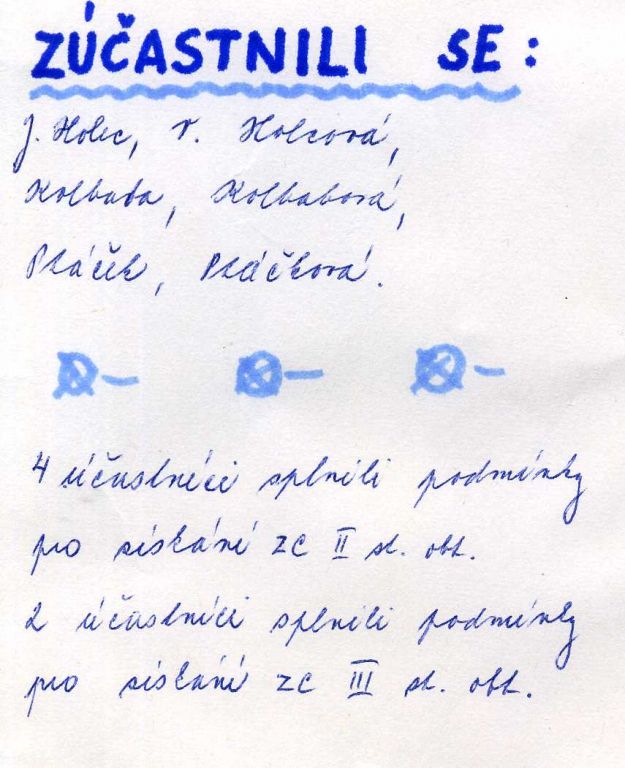 ZÚČASTNILI SE:
J. Holec, V. Holcová,
Kolbaba, Kolbabová,
Ptáček, Ptáčková.
4 účastníci splnili podmínky
pro získání ZC II st. obt.
2 účastníci splnili podmínky
pro získání ZC III st. obt.